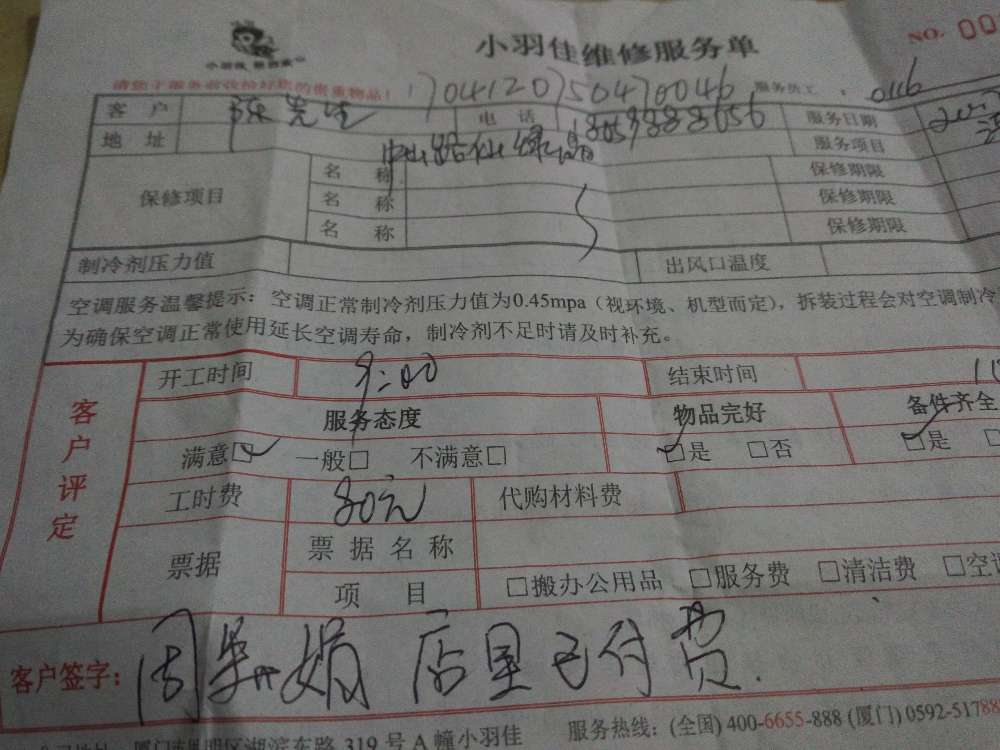 小羽佳维修服务单
NO. 00
请您于服务前收拾好您的贵重物品！
1704120750470046
服务员工：0116
客户 陈先生 电话 服务日期
地址 服务项目
保修项目 名称 保修期限
名称 保修期限
名称 保修期限
制冷剂压力值 出风口温度
空调服务温馨提示：空调正常制冷剂压力值为0.45mpa（视环境、机型而定），拆装过程会对空调制冷
为确保空调正常使用延长空调寿命，制冷剂不足时请及时补充。
客户评定
开工时间 9:00 结束时间
服务态度 物品完好 备件齐全
满意□ 一般□ 不满意□ □是 □否 □是
工时费 80元 代购材料费
票据 票据名称
项目 □搬办公用品 □服务费 □清洁费 □空
客户签字： 店里已付费.
319号A幢小羽佳 服务热线：(全国) 400-6655-888 (厦门) 0592-51788